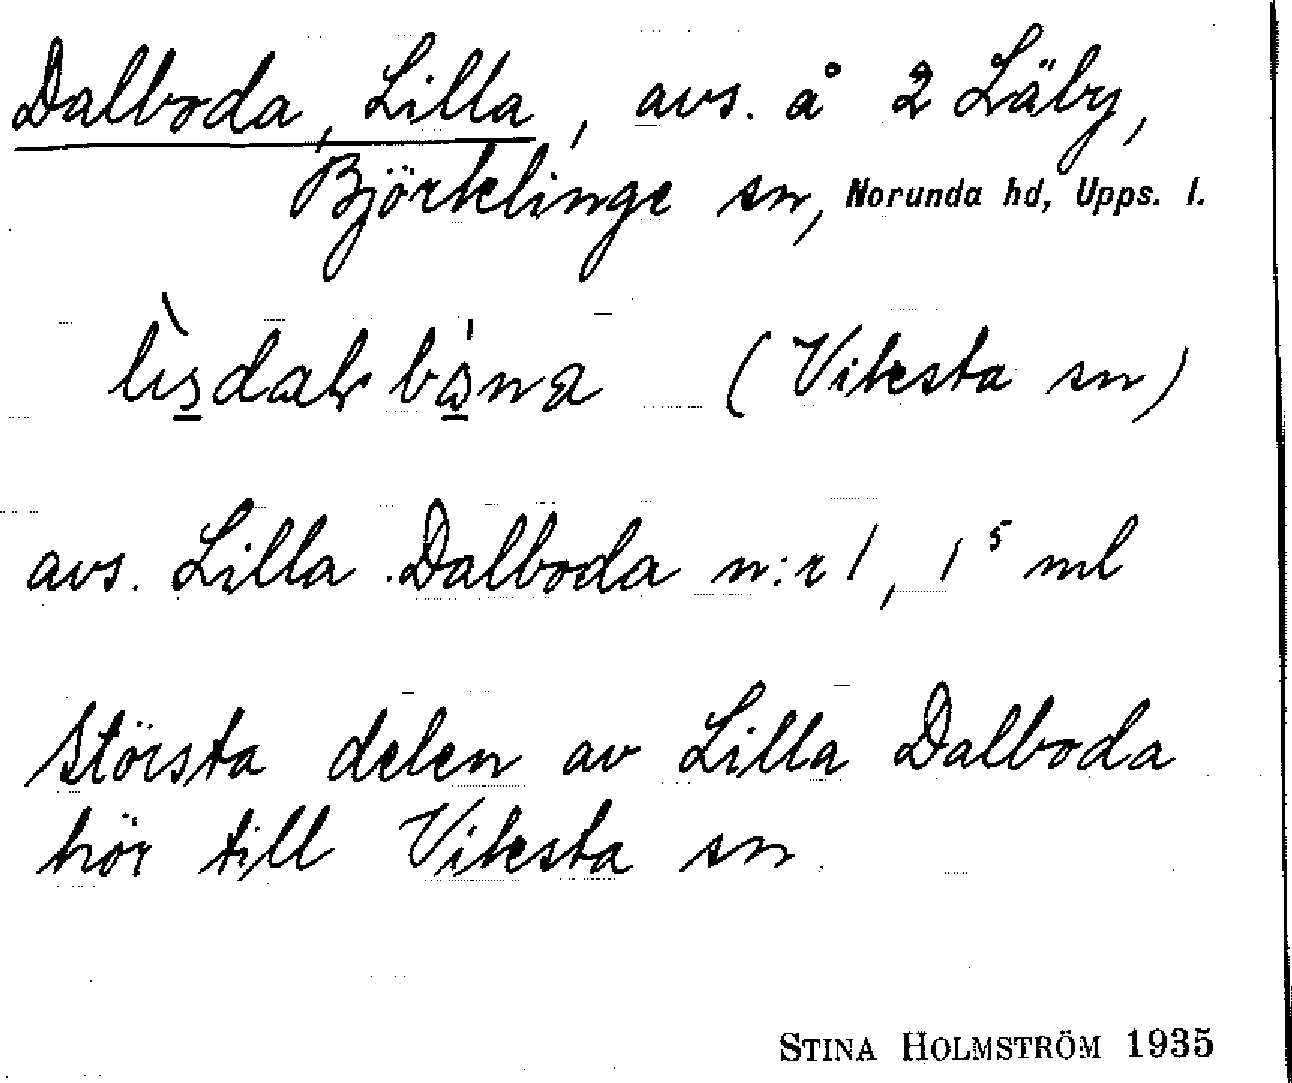 Dalboda, Lilla, avs. å 2 Läby,
Björklinge sn, Norunda hd, Upps. l.
(Viksta sn)
avs. Lilla Dalboda n:r 1, 1⁵ ml
Största delen av Lilla Dalboda
hör till Viksta sn
STINA HOLMSTRÖM 1935